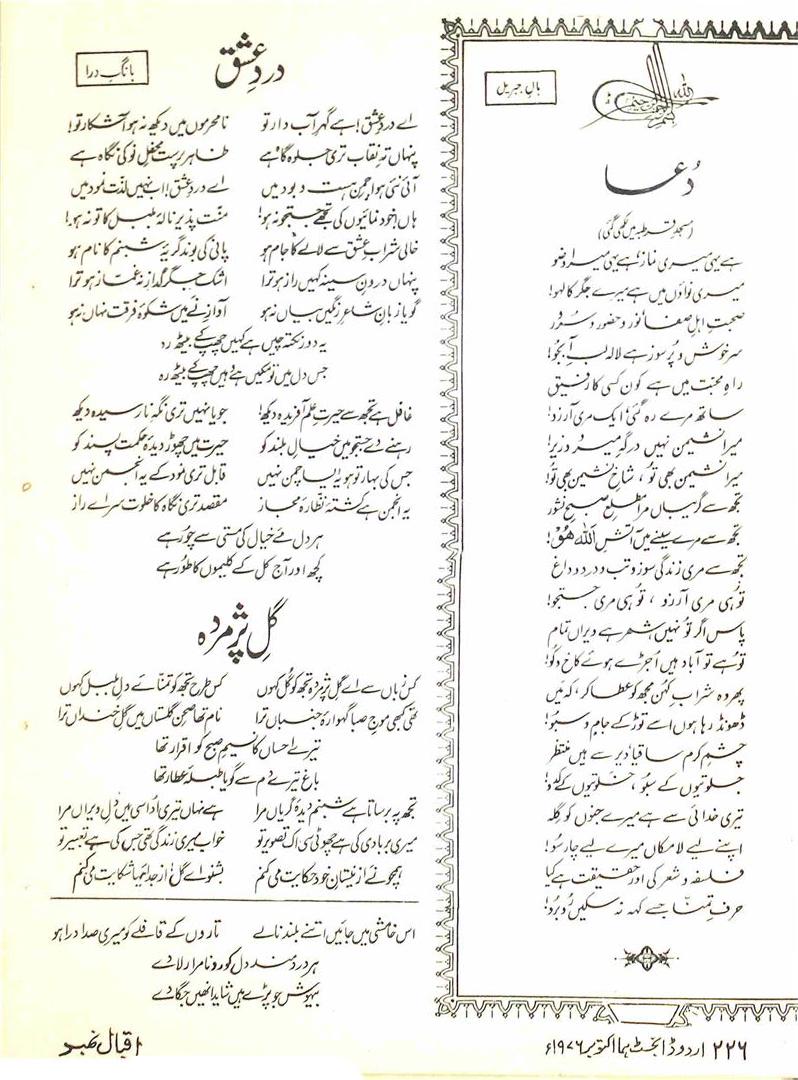 بسم اللہ الرحمن الرحیم
بالِ جبریل
دُعا
(مسجدِ قرطبہ میں لکھی گئی)
ہے یہی میری نماز، ہے یہی میرا وضو
میری نواؤں میں ہے میرے جگر کا لہو!
صحبتِ اہلِ صفا، نور و حضور و سرُور
سرخوش و پُرسوز ہے لالہ لبِ آبجو!
راہِ محبت میں ہے کون کسی کا رفیق
ساتھ مرے رہ گئی، ایک مری آرزو!
میرا نشیمن نہیں درگہِ میر و وزیر!
میرا نشیمن بھی تُو، شاخِ نشیمن بھی تُو!
تجھ سے گریباں مرا مطلعِ صبحِ نشور
تجھ سے مرے سینے میں آتشِ اللہ ھُو!
تجھ سے مری زندگی سوز و تب و درد و داغ
تُو ہی مری آرزو، تُو ہی مری جستجو!
پاس اگر تُو نہیں شہر ہے ویراں تمام
تُو ہے تو آباد ہیں اُجڑے ہوئے کاخ و کُو!
پھر وہ شرابِ کہن مجھ کو عطا کر، کہ میں
ڈھونڈ رہا ہوں اسے توڑ کے جام و سبُو!
چشمِ کرم ساقیا! دیر سے ہیں منتظر
جلوتیوں کے سبُو، خلوتیوں کے کدُو!
تیری خدائی سے ہے میرے جنوں کو گلہ
اپنے لیے لامکاں میرے لیے چار سُو!
فلسفہ و شعر کی اور حقیقت ہے کیا
حرفِ تمنّا جسے کہہ نہ سکیں رُوبرُو!
دردِ عشق
بانگِ درا
اے دردِ عشق! ہے گہرِ آب دار تو نامحرموں میں دیکھ نہ ہو آشکار تو!
پنہاں تہِ نقاب تری جلوہ گاہ ہے ظاہر پرست محفلِ نو کی نگاہ ہے
آئی نئی ہوا چمنِ ہست و بود میں اے دردِ عشق! اب نہیں لذت نمود میں
ہاں! خود نمائیوں کی تجھے جستجو نہ ہو! منّت پذیر نالۂ بلبل کا تو نہ ہو!
خالی شرابِ عشق سے لالے کا جام ہو پانی کی بوند گریۂ شبنم کا نام ہو
پنہاں درونِ سینہ کہیں راز ہو ترا اشکِ جگر گداز نہ غماز ہو ترا
گویا زبانِ شاعرِ رنگیں بیاں نہ ہو آوازِ نے میں شکوۂ فرقت نہاں نہ ہو
یہ دور نکتہ چیں ہے کہیں چھپ کے بیٹھ رہ
جس دل میں تو مکیں ہے وہیں چھپ کے بیٹھ رہ
غافل ہے تجھ سے حیرتِ علم آفریدہ دیکھ! جویا نہیں تری نگہِ نارسیدہ دیکھ
رہنے دے جستجو میں خیالِ بلند کو حیرت میں چھوڑ دیدۂ حکمت پسند کو
جس کی بہار تو ہو یہ ایسا چمن نہیں قابل تری نمود کے یہ انجمن نہیں
یہ انجمن ہے کشتۂ نظارۂ مجاز مقصد تری نگاہ کا خلوت سرائے راز
ہر دل مئے خیال کی مستی سے چُور ہے
کچھ اور آج کل کے کلیموں کا طُور ہے
گلِ پژمردہ
کس زباں سے اے گلِ پژمردہ تجھ کو گُل کہوں کس طرح تجھ کو تمنائے دلِ بلبل کہوں
تھی کبھی موجِ صبا گہوارۂ جنباں ترا نام تھا صحنِ گلستاں میں گلِ خنداں ترا
تیرے احساں کا نسیمِ صبح کو اقرار تھا
باغ تیرے دم سے گویا طبلۂ عطار تھا
تجھ پہ برساتا ہے شبنم دیدۂ گریاں مرا ہے نہاں تیری اُداسی میں دلِ ویراں مرا
میری بربادی کی ہے چھوٹی سی اک تصویر تو خواب میری زندگی تھی جس کی ہے تعبیر تو
ہمچو نے از نیستانِ خود حکایت می کنم بشنو اے گل! از جدائیہا شکایت می کنم
اس خامشی میں جائیں اتنے بلند نالے تاروں کے قافلے کو میری صدا درا ہو
ہر دردمند دل کو رونا مرا رلا دے
بیہوش جو پڑے ہیں شاید انھیں جگا دے
۲۲۶ اردو ڈائجسٹ ہما اکتوبر ۱۹۷۶ء
اقبال نمبر